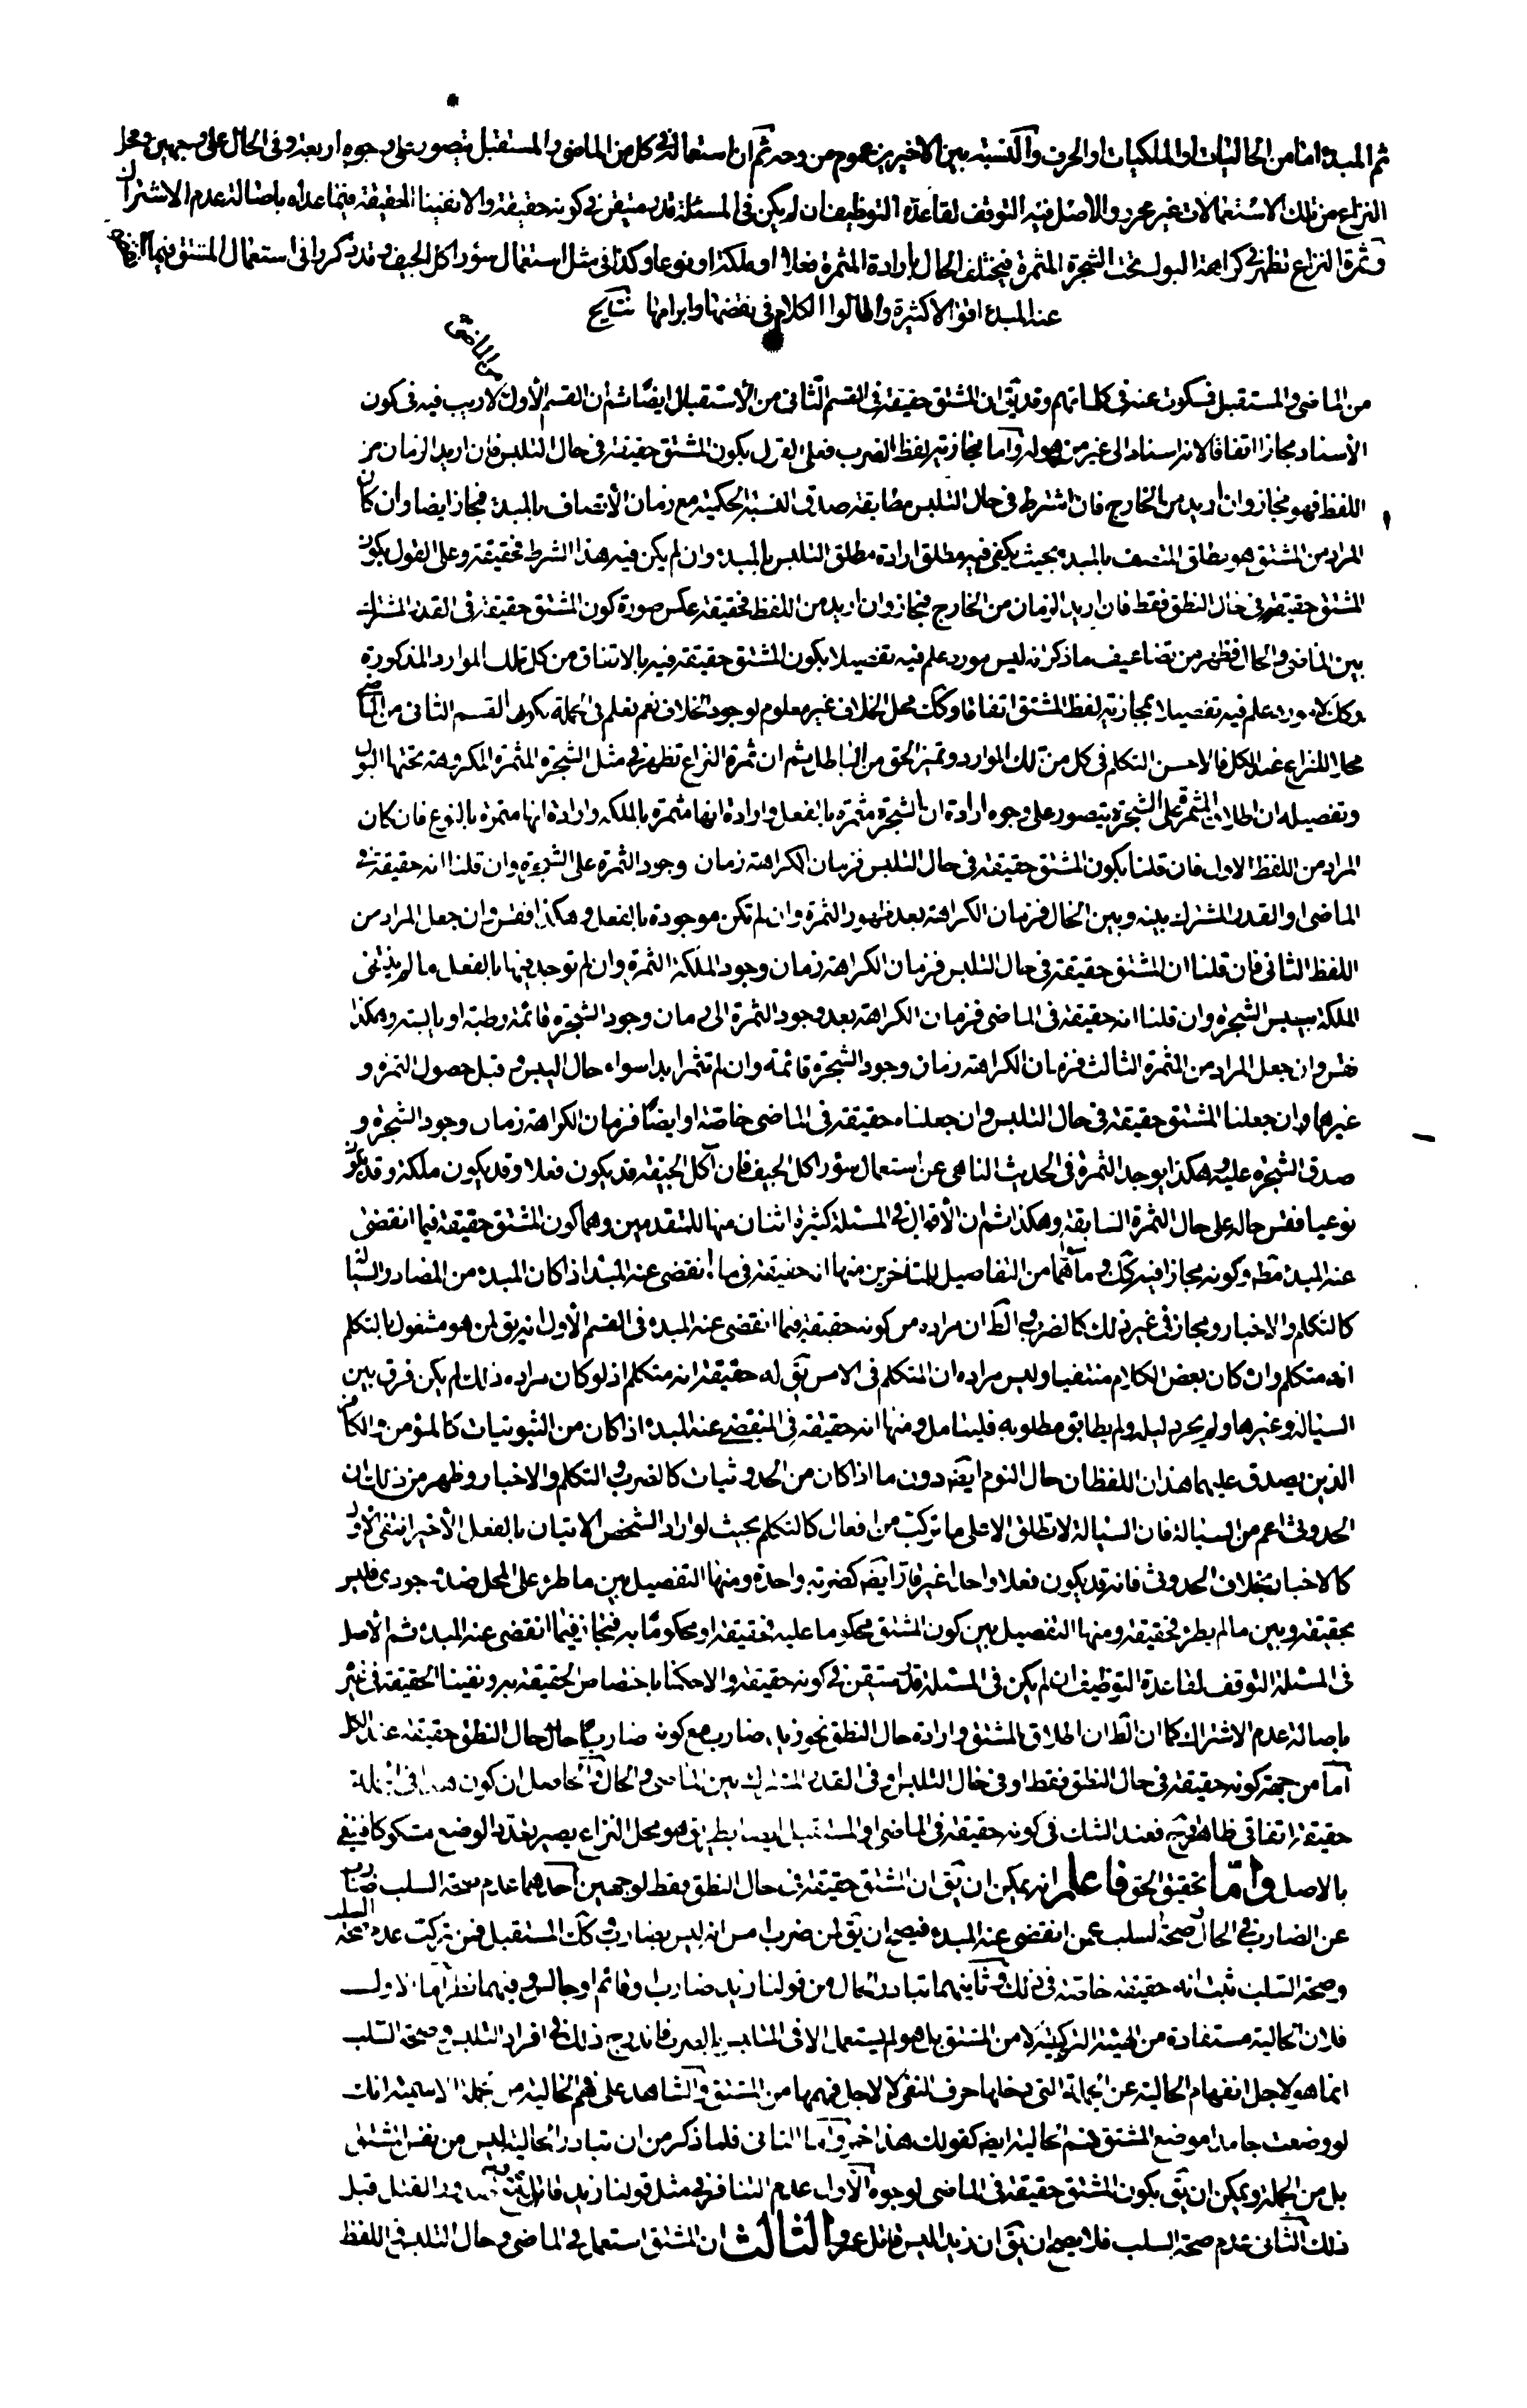 ثم المبدء اما من الحاليات او الملكيات او الحرف والنسبة بين الاخيرين عموم من وجه ثم ان استعماله في كل من الماضى والمستقبل يتصور على وجوه اربعة وفى الحال على وجهين ومحل
النزاع من تلك الاستعمالات غير محرر والاصل فيه التوقف لقاعدة التوظيف ان لم يكن فى المسئلة قدر متيقن في كونه حقيقة والا نفينا الحقيقة فيما عداه باصالة عدم الاشتراك
وثمرة النزاع تظهر في كراهة البول تحت الشجرة المثمرة فيختلف الحال بارادة المثمرة فعلا او ملكة او نوعا وكذا فى مثل استعمال سؤر اكل الجيف وقد ذكروا فى استعمال المشتق فيما انقضى
عنه المبدء اقوالا كثيرة واطالوا الكلام فى نقضها وابرامها نتايج
من الماضى والمستقبل فسكوت عنه فى كلماتهم وقد يق ان المشتق حقيقة فى القسم الثانى من الاستقبال ايضا ثم ان القسم الأول من الماضى لا ريب فيه فى كون
الأسناد مجازا اتفاقا لانه اسناد الى غير من هو له واما مجازية لفظ الضرب فعلى القول بكون المشتق حقيقة فى حال التلبس فان اريد الزمان من
اللفظ فهو مجاز وان اريد من الخارج فان اشترط فى حال التلبس مطابقة صدق النسبة الحكمية مع زمان الأتصاف بالمبدء فمجاز ايضا وان كان
المراد من المشتق هو مطلق المتصف بالمبدء بحيث يكفى فيه مطلق ارادة مطلق التلبس بالمبدء وان لم يكن فيه هذا الشرط فحقيقة وعلى القول بكون
المشتق حقيقة فى حال النطق فقط فان اريد الزمان من الخارج فمجاز وان اريد من اللفظ فحقيقة عكس صورة كون المشتق حقيقة فى القدر المشترك
بين الماضى والحال فظهر من تضاعيف ما ذكر انه ليس مورد علم فيه تفصيلا بكون المشتق حقيقة فيه بالاتفاق من كل تلك الموارد المذكورة
وكك لا مورد علم فيه تفصيلا بمجازية لفظ المشتق اتفاقا وكك محل الخلاف غير معلوم لوجود الخلاف نعم نعلم فى الجملة بكون القسم الثانى من الماضى
محلا للنزاع عند الكل فالاحسن التكلم فى كل من تلك الموارد وتميز الحق من الباطل ثم ان ثمرة النزاع تظهر في مثل الشجرة المثمرة المكروهة تحتها البول
وتفصيله ان اطلاق المثمرة على الشجرة يتصور على وجوه ارادة ان الشجرة مثمرة بالفعل وارادة انها مثمرة بالملكة وارادة انها مثمرة بالنوع فان كان
المراد من اللفظ الاول فان قلنا بكون المشتق حقيقة فى حال التلبس فزمان الكراهة زمان وجود الثمرة على الشجرة وان قلنا انه حقيقة في
الماضى او القدر المشترك بينه وبين الحال فزمان الكراهة بعد ظهور الثمرة وان لم تكن موجودة بالفعل وهكذا فقس وان جعل المراد من
اللفظ الثانى فان قلنا ان المشتق حقيقة فى حال التلبس فزمان الكراهة زمان وجود الملكة الثمرة وان لم توجد فيها بالفعل ما لم ينتف
الملكة بيبس الشجرة وان قلنا انه حقيقة فى الماضى فزمان الكراهة بعد وجود الثمرة الى زمان وجود الشجرة قائمة رطبة او يابسة وهكذا
فقس وان جعل المراد من المثمرة الثالث فزمان الكراهة زمان وجود الشجرة قائمة وان لم تثمر ابدا سواء حال اليبس وقبل حصول الثمرة و
غيرها وان جعلنا المشتق حقيقة فى حال التلبس وان جعلناه حقيقة فى الماضى خاصة او ايضا فزمان الكراهة زمان وجود الشجرة و
صدق الشجرة عليه وهكذا يوجد الثمرة فى الحديث الناهى عن استعمال سؤر اكل الجيف فان آكل الجيفة قد يكون فعلا وقد يكون ملكة وقد يكون
نوعيا فقس حاله على حال الثمرة السابقة وهكذا ثم ان الأقوال في المسئلة كثيرة اثنان منها للمتقدمين وهما كون المشتق حقيقة فيما انقضى
عنه المبدء مطه وكونه مجازا فيه كك وما من التفاصيل للمتأخرين منها انه حقيقة فى ما انقضى عنه المبدء اذا كان المبدء من المصادر السيالة
كالتكلم والاخبار ومجاز في غير ذلك كالضرب والظ ان مراده من كونه حقيقة فيما انقضى عنه المبدء فى القسم الأول انه يق لمن هو مشغول بالتكلم
انه متكلم وان كان بعض الكلام منتفيا وليس مراده ان المتكلم فى الامس يق له حقيقة انه متكلم اذ لو كان مراده ذلك لم يكن فرق بين
السيالة وغيرها ولم يجر دليله ولم يطابق مطلوبه فليتامل ومنها انه حقيقة فى المنقضى عنه المبدء اذا كان من الثبوتيات كالمؤمن والكافر
الذين يصدق عليهما هذان اللفظان حال النوم ايضه دون ما اذا كان من الحدوثيات كالضرب والتكلم والاخبار وظهر من ذلك ان
الحدوث اعم من السيالة فان السيالة لا تطلق الا على ما تركب من افعال كالتكلم بحيث لو اراد الشخص الاتيان بالفعل الأخير انتفى الاول
كالاخبار بخلاف الحدوث فانه قد يكون فعلا واحدا غير قار ايضه كضربة واحدة ومنها التفصيل بين ما طرء على المحل ضد وجودى فليس
بحقيقة وبين ما لم يطرء فحقيقة ومنها التفصيل بين كون المشتق محكوما عليه فحقيقة او محكوما به فمجاز فيما انقضى عنه المبدء ثم الأصل
فى المسئلة التوقف لقاعدة التوظيف ان لم يكن فى المسئلة قدر متيقن في كونه حقيقة والا حكمنا باختصاص الحقيقة به ونفينا الحقيقة فى غيره
باصالة عدم الاشتراك كما ان الظ ان اطلاق المشتق وارادة حال النطق نحو زيد ضارب مع كونه ضاربا حال حال النطق حقيقة عند الكل
اما من جهة كونه حقيقة فى حال النطق فقط او فى حال التلبس او فى القدر المشترك بين الماضى والحال والحاصل ان كون هذا فى الجملة
حقيقة اتفاقى ظاهرا فعند الشك فى كونه حقيقة فى الماضى او المستقبل ايضا بطريق هو محل النزاع يصير تعدد الوضع مشكوكا فينفى
بالاصل واما تحقيق الحق فاعلم انه يمكن ان يق ان المشتق حقيقة فى حال النطق فقط لوجهين احدهما عدم صحة السلب
عن الضارب في الحال صحة السلب عمن انقضى عنه المبدء فيصح ان يق لمن ضرب امس انه ليس بضارب وكك المستقبل فمن تركب عدم صحة السلب
وصحة السلب ثبت انه حقيقة خاصة فى ذلك وثانيهما تبادر الحال من قولنا زيد ضارب او قائم او جالس وفيهما نظر اما الاول
فلان الحالية مستفادة من الهيئة التركيبية لا من المشتق بل هو لم يستعمل الا فى المتلبس بالضرب فاندرج ذلك في افراد التلبس وصحة السلب
انما هو لاجل انفهام الحالية عن الجملة التى دخلها حرف النفى لا لاجل فهمها من المشتق والشاهد على فهم الحالية من جملة الاسمية انك
لو وضعت جامدا موضع المشتق فهم الحالية ايضه كقولك هذا واما الثانى فلما ذكر من ان تبادر الحالية ليس من نفس المشتق
بل من الجملة ويمكن ان يق بكون المشتق حقيقة فى الماضى لوجوه الاول عدم التنافر في مثل قولنا زيد قاتل القتل قبل
ذلك الثانى عدم صحة السلب فلا يصح ان يق ان زيدا ليس قاتل عمرو والثالث ان المشتق استعمل في الماضى وحال التلبس فى اللفظ